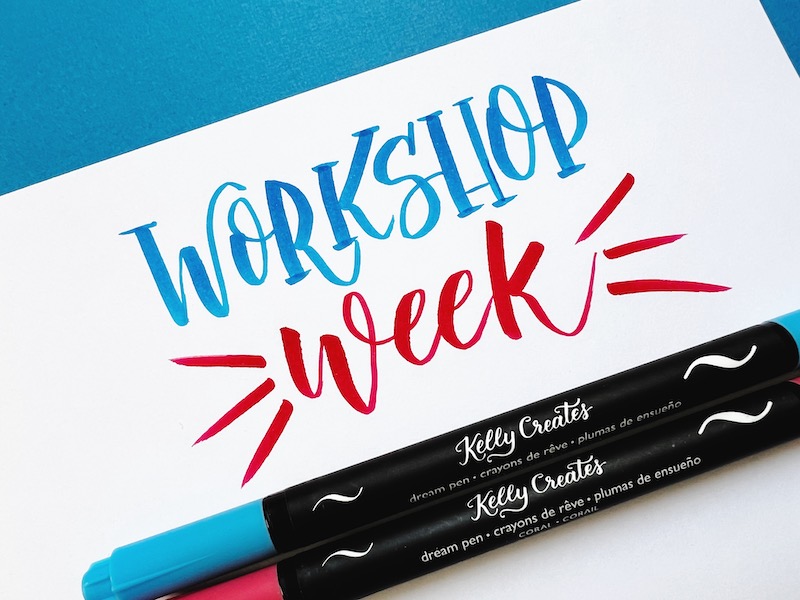 WORKSHOP
week
Kelly Creates
dream pen • crayons de rêve • plumas de ensueño
Kelly Creates
dream pen • crayons de rêve • plumas de ensueño
CORAL • CORAIL